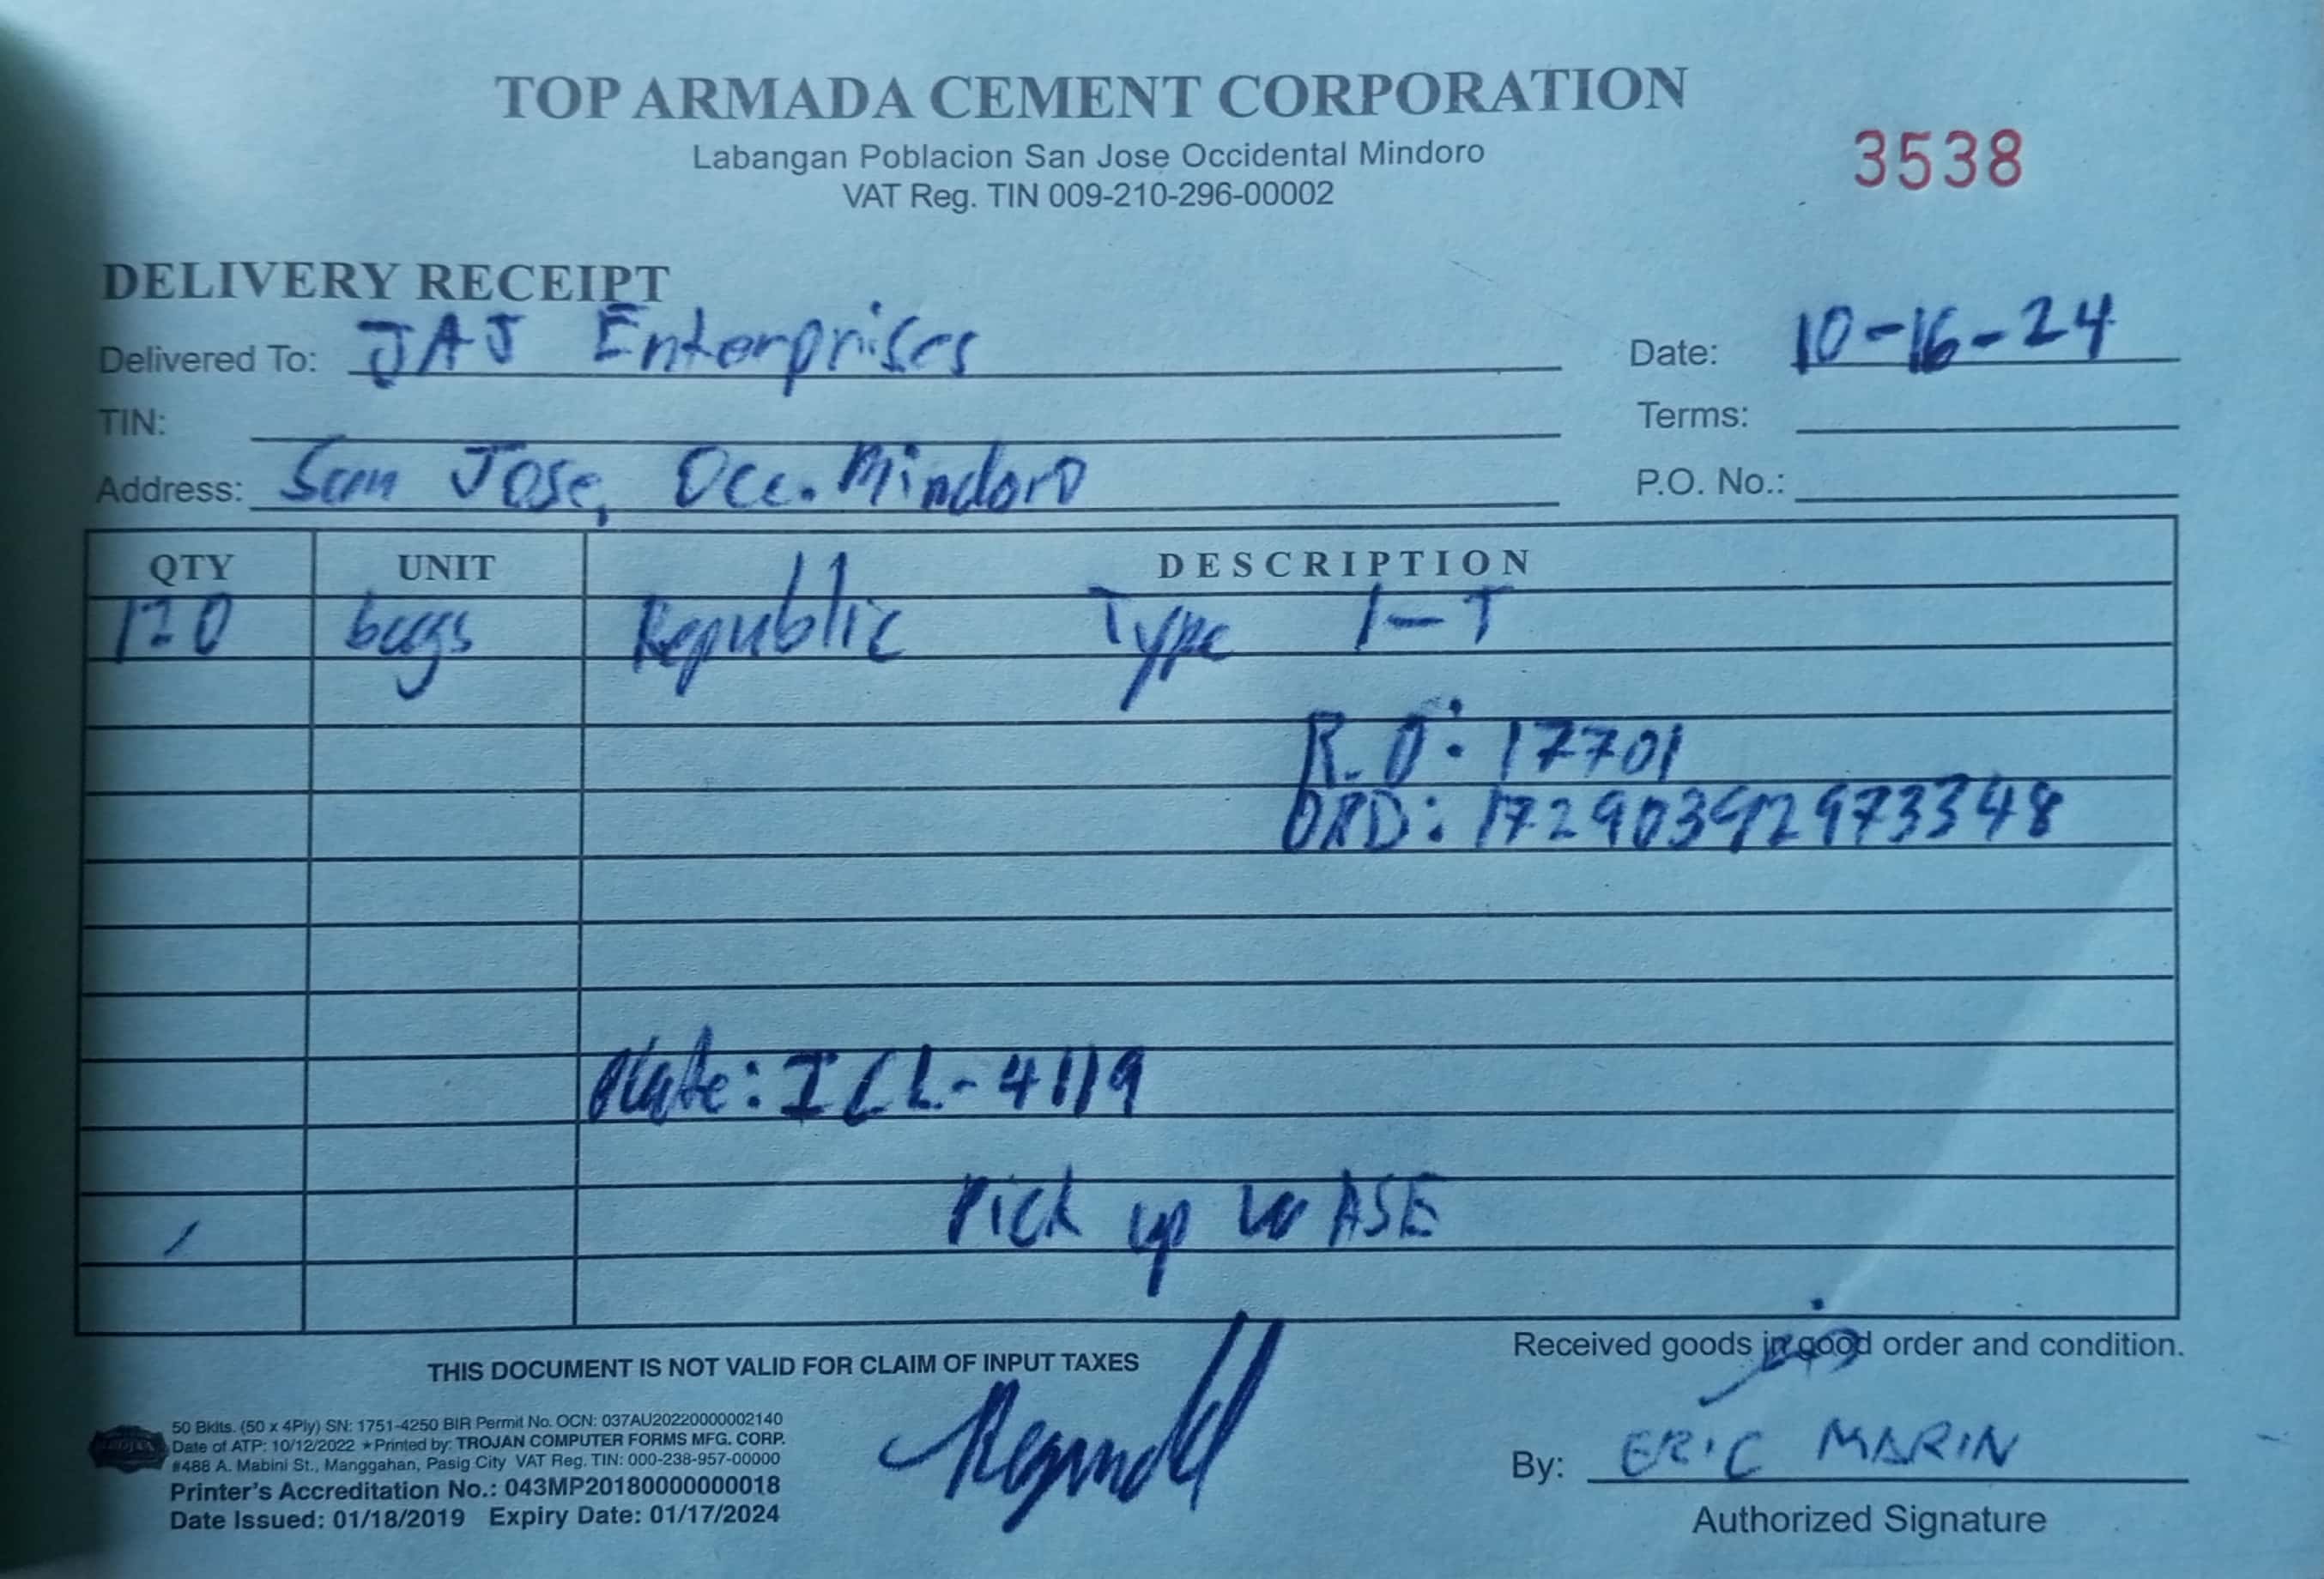 TOP ARMADA CEMENT CORPORATION
Labangan Poblacion San Jose Occidental Mindoro
VAT Reg. TIN 009-210-296-00002
3538
DELIVERY RECEIPT
Delivered To: JAJ Enterprises
Date: 10-16-24
TIN:
Terms:
Address: San Jose, Occ. Mindoro
P.O. No.:
QTY UNIT DESCRIPTION
120 bags Republic Type 1-T
R.O: 17701
ORD: 17290392973348
Plate: ICL-4119
Pick up w ASE
THIS DOCUMENT IS NOT VALID FOR CLAIM OF INPUT TAXES
Received goods in good order and condition.
50 Bklts. (50 x 4Ply) SN: 1751-4250 BIR Permit No. OCN: 037AU20220000002140
Date of ATP: 10/12/2022 ★Printed by: TROJAN COMPUTER FORMS MFG. CORP.
#488 A. Mabini St., Manggahan, Pasig City VAT Reg. TIN: 000-238-957-00000
Printer's Accreditation No.: 043MP20180000000018
Date Issued: 01/18/2019 Expiry Date: 01/17/2024
By: ERIC MARIN
Authorized Signature